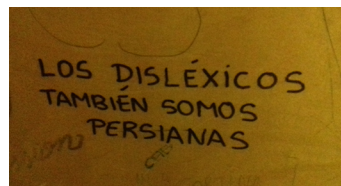 LOS DISLÉXICOS
TAMBIÉN SOMOS
PERSIANAS